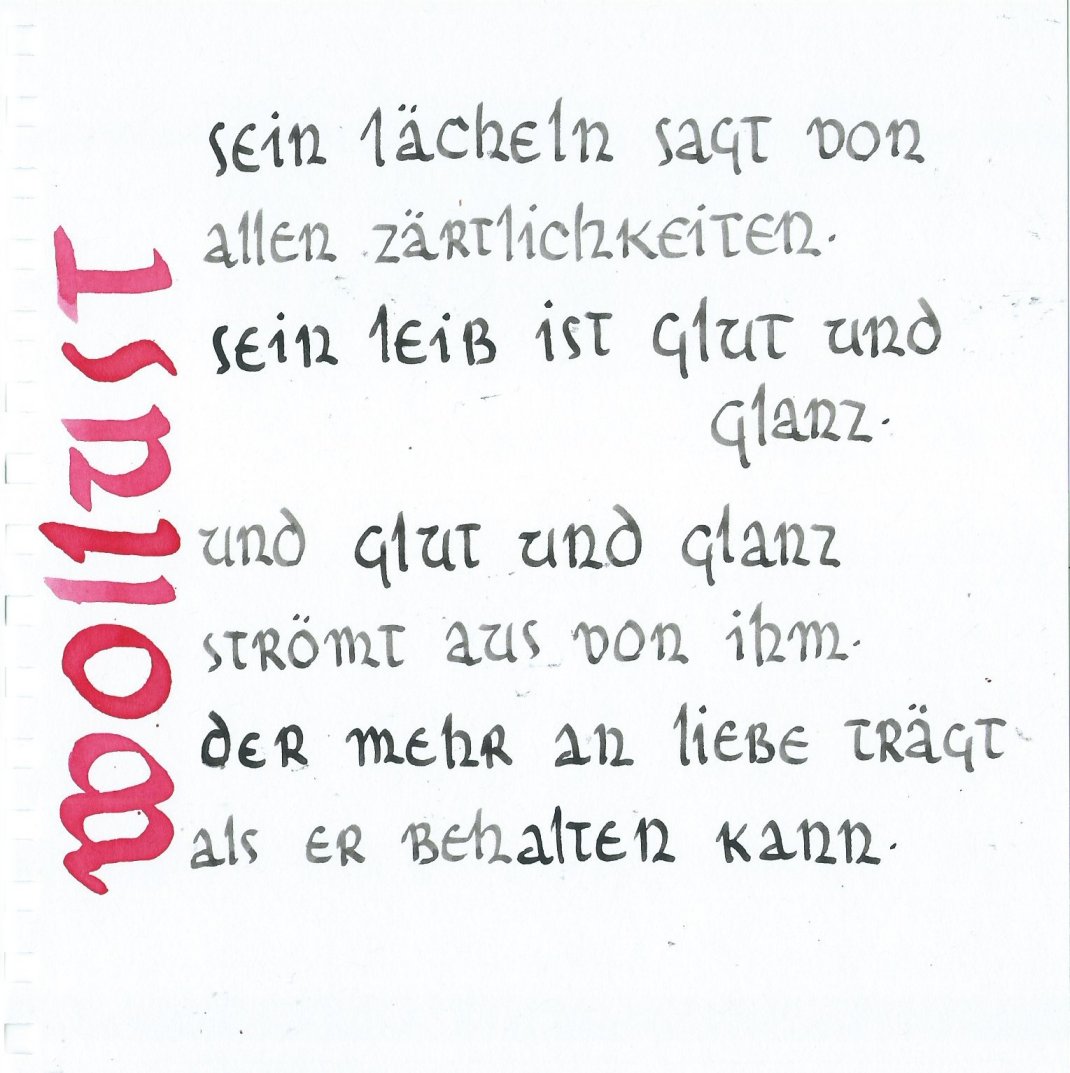 wollust
sein lächeln sagt von
allen zärtlichkeiten.
sein leib ist glut und
glanz.
und glut und glanz
strömt aus von ihm.
der mehr an liebe trägt
als er behalten kann.